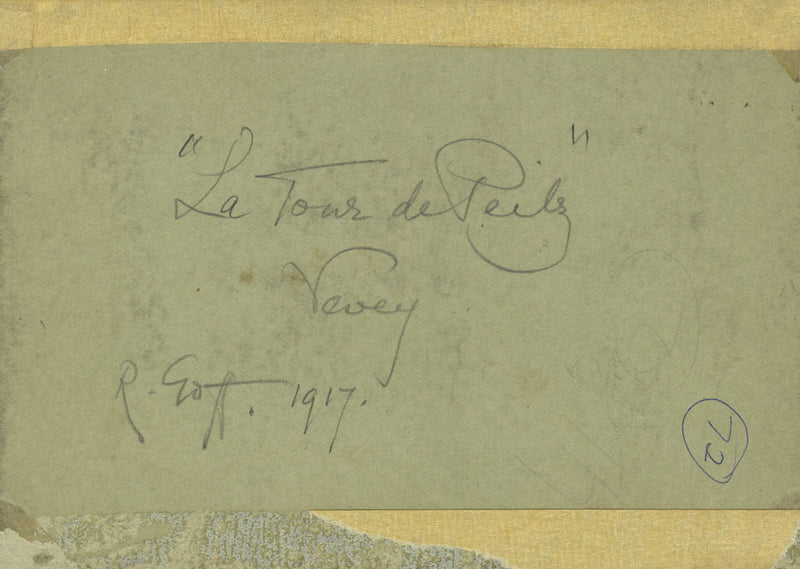 "La Tour de Peilz"
Vevey
R. Goff. 1917.
72